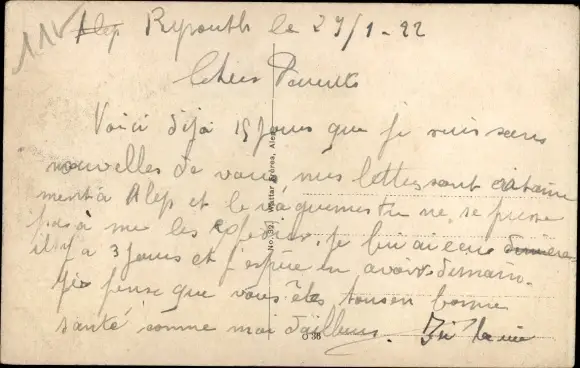 11
Alep Beyrouth le 27/1-22
Chers Parents
Voici déjà 15 jours que je suis sans
nouvelles de vous, mes lettres sont certaine
ment à Alep et le vaguemestre ne se presse
pas à me les
il y a 3 jours et j'espère en avoir demain.
Je pense que vous êtes tous en bonne
santé comme moi d'ailleurs.
No. 39. Wattar Frères, Alep
C 36